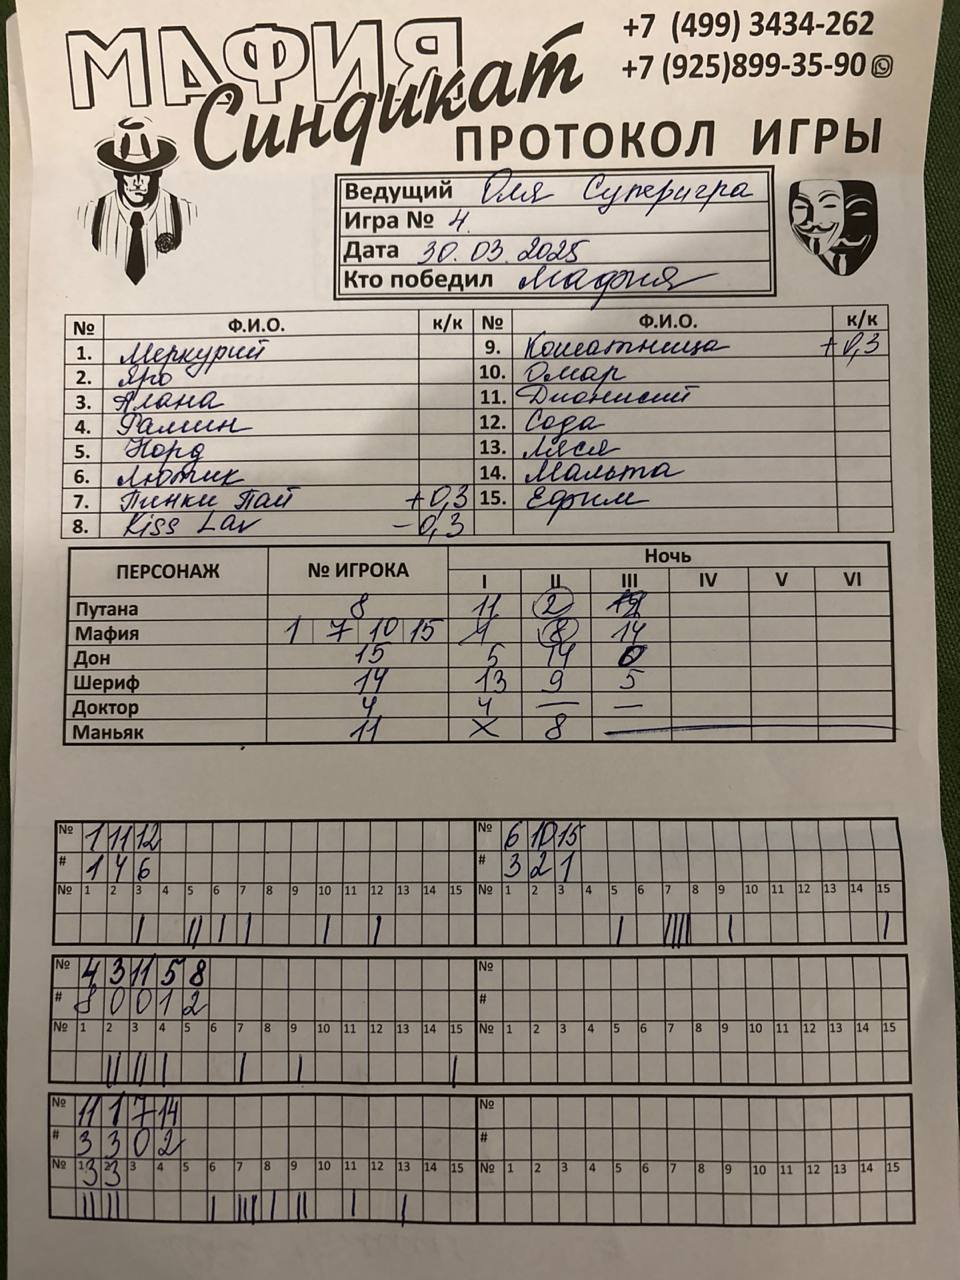 МАФИЯ
Синдикат
+7 (499) 3434-262
+7 (925)899-35-90
ПРОТОКОЛ ИГРЫ
Ведущий Оля Суперигра
Игра № 4
Дата 30.03.2025
Кто победил Мафия
№ Ф.И.О. к/к № Ф.И.О. к/к
1. Меркурий 9. Кошатница +0,3
2. Яро 10. Омар
3. Алана 11. Дионисий
4. Рамин 12. Сода
5. Норд 13. Ляся
6. Лютик 14. Мальта
7. Пинки Пай +0,3 15. Ефим
8. Kiss Lav -0,3
ПЕРСОНАЖ № ИГРОКА Ночь
I II III IV V VI
Путана 8 11 2
Мафия 1 7 10 15 8 14
Дон 15 5 14
Шериф 14 13 9 5
Доктор 4 4 — —
Маньяк 11 X 8
№ 1 11 12 № 6 10 15
# 1 4 6 # 3 2 1
№ 1 2 3 4 5 6 7 8 9 10 11 12 13 14 15 № 1 2 3 4 5 6 7 8 9 10 11 12 13 14 15
№ 4 3 11 5 8 №
# 8 0 0 1 2 #
№ 1 2 3 4 5 6 7 8 9 10 11 12 13 14 15 № 1 2 3 4 5 6 7 8 9 10 11 12 13 14 15
№ 11 1 7 14 №
# 3 3 0 2 #
№ 1 2 3 4 5 6 7 8 9 10 11 12 13 14 15 № 1 2 3 4 5 6 7 8 9 10 11 12 13 14 15
3 3